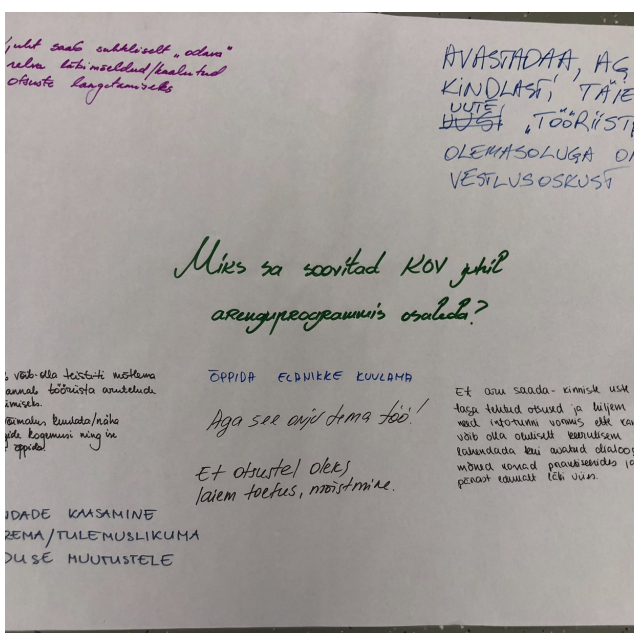 juht saab suhteliselt „odava"
relva läbimõeldud/kaalutud
otsuste langetamiseks
AVASTADAA, AG
KINDLASTI TÄIE
UUTE
UUSI „TÖÖRIIST
OLEMASOLUGA O
VESTLUSOSKUST
Miks sa soovitad KOV juhil
arenguprogrammis osaleda?
võib-olla teistviti mõtlema
annab tööriista aruteludu
imiseks.
kuulata/näha
kogemusi ning ise
õppida
ÕPPIDA ELANIKKE KUULAMA
Aga see onju tema töö!
Et otsustel oleks
laiem toetus, mõistmine.
Et aru saada - kinniste uste
taga tehtud otsused ja hiljem
neid infotunni vormis ette kan
võib olla oluliselt keerulisem
lahendada kui avatud dialoog
mõned korrad praktiseerides ja
pärast edukalt läbi viies.
DADE KAASAMINE
REMA/TULEMUSLIKUMA
DUSE MUUTUSTELE